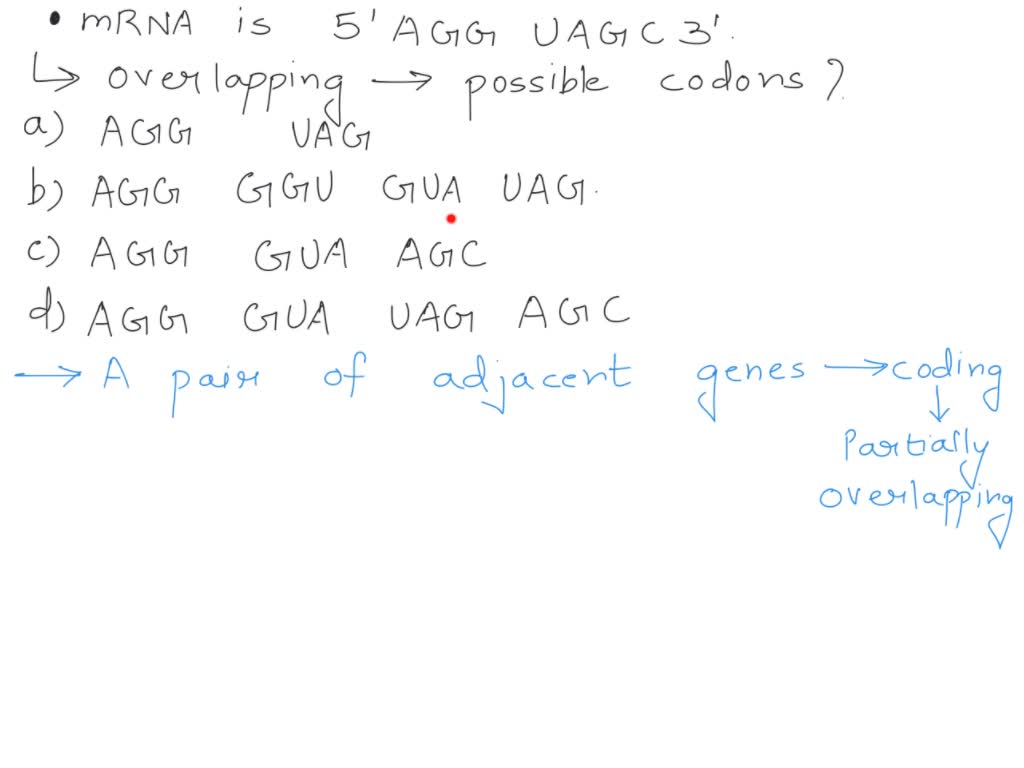 • mRNA is 5' AGG UAGC 3'.
↳ overlapping → possible codons?
a) AGG UAG
b) AGG GGU GUA UAG.
c) AGG GUA AGC
d) AGG GUA UAG AGC
→ A pair of adjacent genes → coding
↓
Partially
overlapping